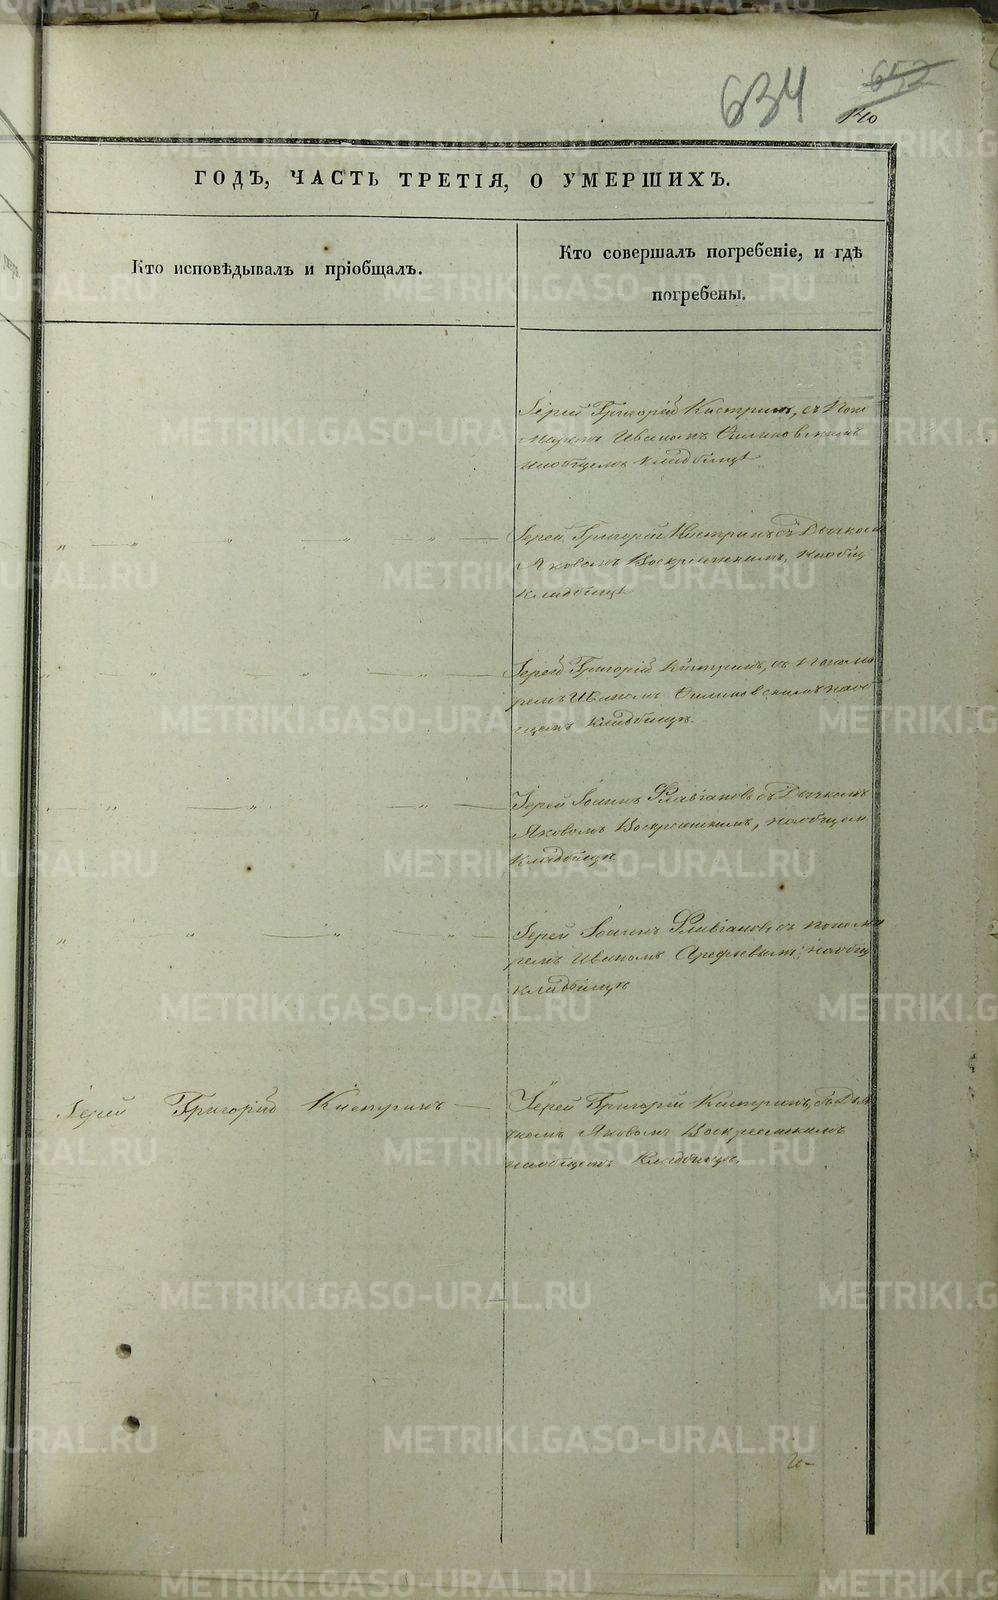 634
652
140
ГОДЪ, ЧАСТЬ ТРЕТІЯ, О УМЕРШИХЪ.
Кто исповѣдывалъ и пріобщалъ.
Кто совершалъ погребеніе, и гдѣ
погребены.
Іерей Григорій Кистринъ, съ Поно
маремъ Иваномъ
наобщемъ Кладбищѣ
Іерей Григорій Кистринъ съ Дьячкомъ
Яковомъ Воскресенскимъ, наобщ
Кладбищѣ
Іерей Григорій Кистринъ, съ Понома
ремъ Иваномъ наоб
щемъ Кладбищѣ.
Іерей Іоаннъ Флавіановъ съ Дьячкомъ
Яковомъ Воскресенскимъ, наобщем
Кладбищѣ
Іерей Іоаннъ Флавіановъ, съ понома
ремъ Иваномъ Арефьевымъ, наобщ
кладбищѣ
Іерей Григорій Кистринъ
Іерей Григорій Кистринъ, съ Дья
чкомъ Яковомъ Воскресенскимъ
наобщемъ Кладбищѣ.
METRIKI.GASO-URAL.RU